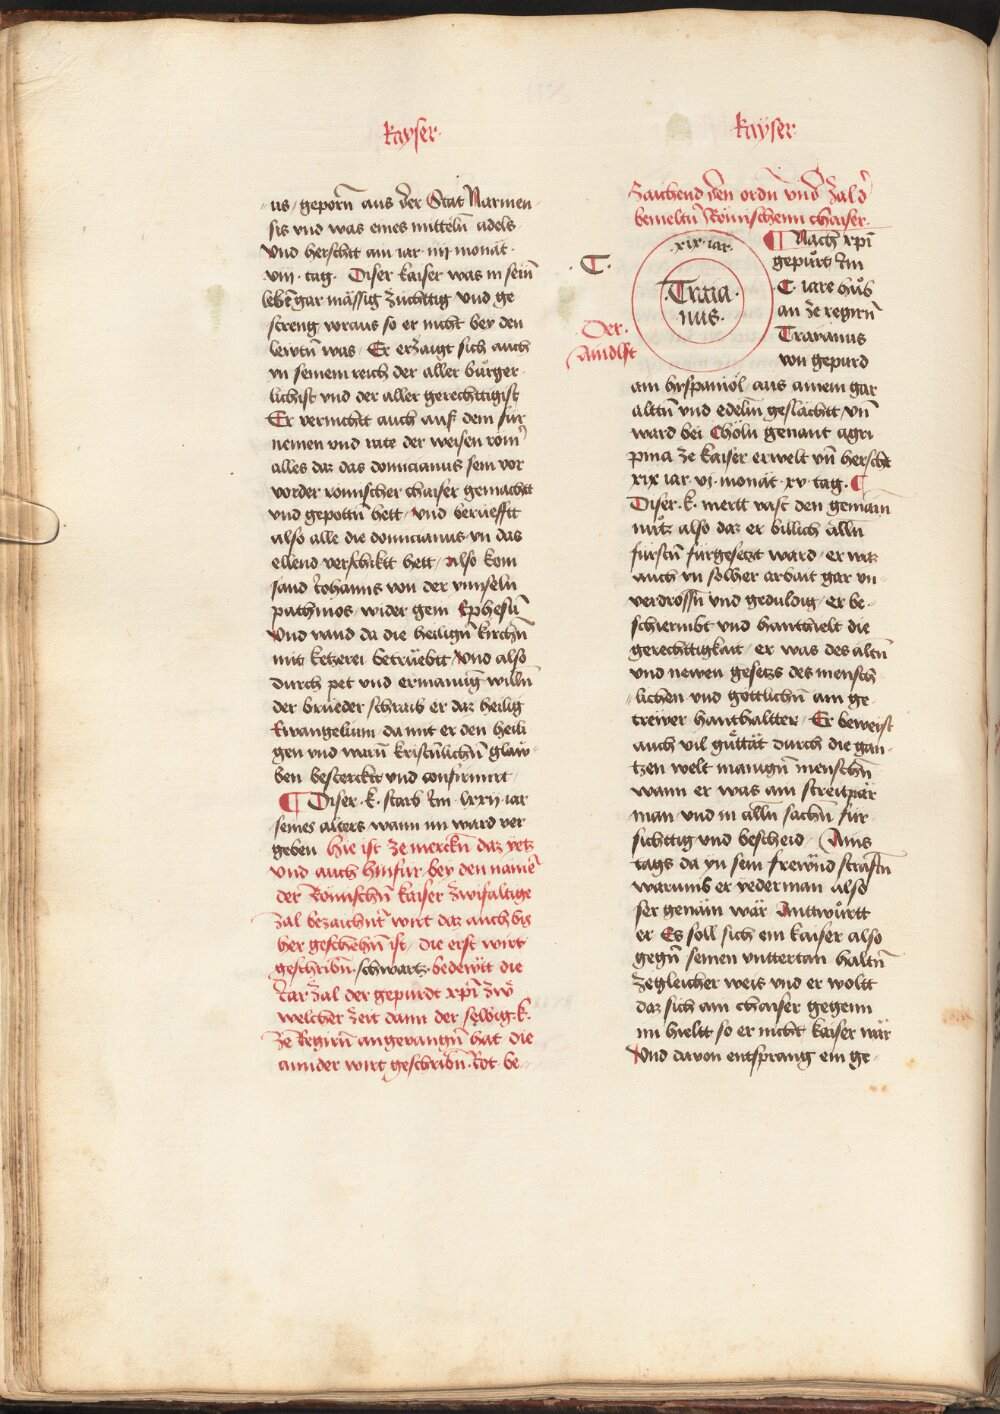 kayser·
us / geporn̄ aus der Stat Narmen
sis vnd was eines mitteln̄ adels·
Vnd herschtt am iar· iiij monät·
viij· tag· Diser kaiser was in sein̄
leben̄ gar mässig züchttig vnd ge
streng voraus so er nicht bey den
lewtn̄ was· Er erzaigt sich auch
yn seinem reich der aller bůrger·
lichist vnd der aller gerechttigist
Er vernichtt auch auf dem für
nemen vnd rate der weisen röm̄
alles daz das domicianus sein vor
vorder römischer chaiser gemachtt
vnd gepottn̄ hett / Vnd berüefftt
also alle die domicianus yn das
ellend verschiktt hett / also kom
sand Iohanns von der ynnseln̄
pathmos / wider gein Ephesū
Vnd vand da die heilign̄ kirchn̄
mit ketzerei betrüebtt / Vnd also
durch pet vnd ermanūg willn̄
der brüeder schraib er daz heilig
Ewangelium / da mit er den heili
gen vnd warn̄ kristn̄lichn̄ glaw·
ben bestercktt vnd confirmirt /
¶ Diser·k· starb Im· lxxij iar
seines alters wann im ward ver
geben Hie ist ze merckn̄ daz yetz
vnd auch hinfür / bey den namē
der Römischn̄ kaiser zwifaltige
zal bezaichnt̄ wirt daz auch bis
her geschehn̄ ist / die erst wirt
geschribn̄· schwartz· bedewtt die
Iar zal der gepurdt xp̄i zw̄
welcher zeit dann der selbig·k·
ze Regirn̄ angevangn̄ hat die
annder wirt geschribn̄· Rot be··
kayser·
zaichend den ordn̄ vnd zal d̄
bemeltn̄ Römischenn chaiser·
·C·
·xix·iar·
·Traia·
nus·
Der·
Aindlft
¶ Nach xp̄i
gepürt Im
·C· iare hůs
an ze regirn̄
Traianus
von gepurd
ain hyspaniol / aus ainem gar
alttn̄ vnd edelm̄ geslächtt / vn̄
ward bei Chöln genant agri
pina ze kaiser erwelt vn̄ herscht
xix iar· vj· monät· xv· tag· ¶
Diser·k· mertt vast den gemain̄
nutz also daz er billich alln̄
fürstn̄ fürgesetzt ward / er waz
auch yn solher arbait gar vn·
verdrossn̄ vnd geduldig / er be··
schiermbt vnd hanthielt die
gerechttigkait / er was des altn̄
vnd newen gesetzs des mensch
lichen vnd göttlichn̄ ain ge·
trewer hanthaltter· Er beweist
auch vil gůttät durch die gan·
tzen welt manign̄ menschn̄
wann er was ain streitpär
man vnd in alln̄ sachn̄ für·
sichttig vnd bescheid· / Ains
tags da yn sein frewnd straftn̄
warumb er yederman also
ser genäm wär· Anttwůrtt
er· Es soll sich ein kaiser also
gegn̄ seinen vnttertan haltn̄
zegleicher weis vnd er wollt
daz sich ain chaiser gegenn
im hieltt so er nicht kaiser wär
Vnd davon entsprang ein ge·